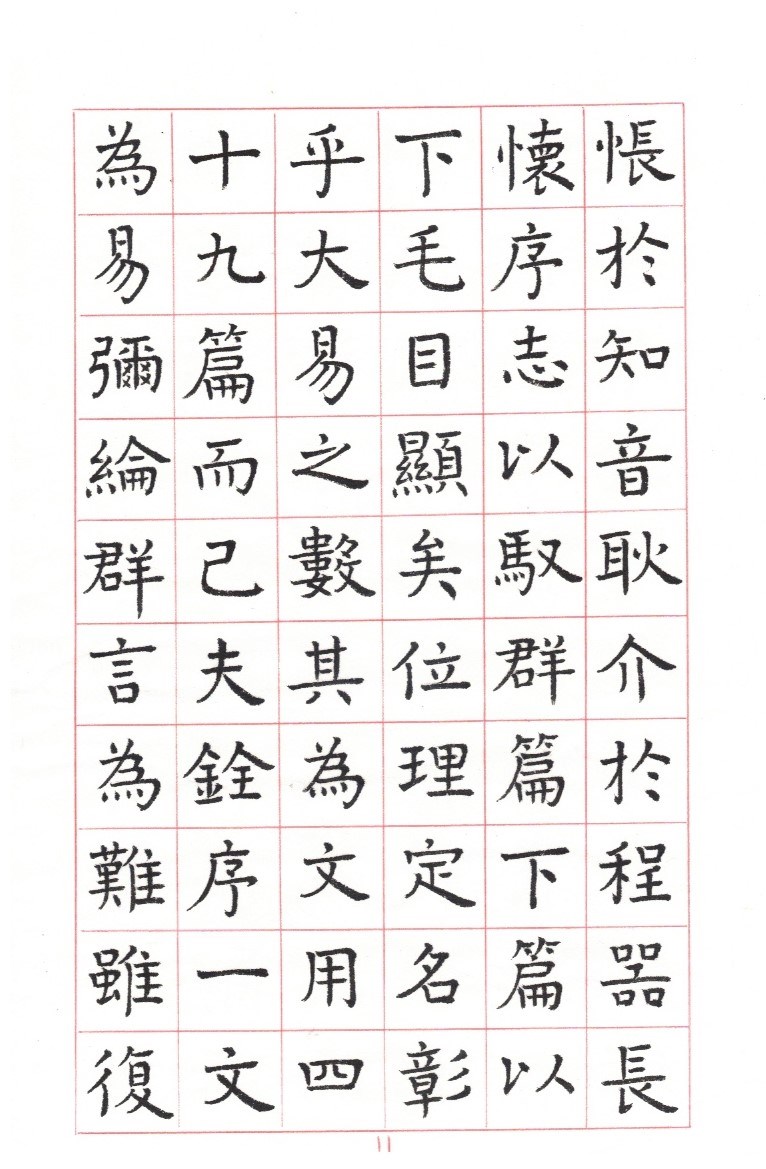 悵於知音耿介於程器長
懷序志以馭群篇下篇以
下毛目顯矣位理定名彰
乎大易之數其為文用四
十九篇而己夫銓序一文
為易彌綸群言為難雖復
11